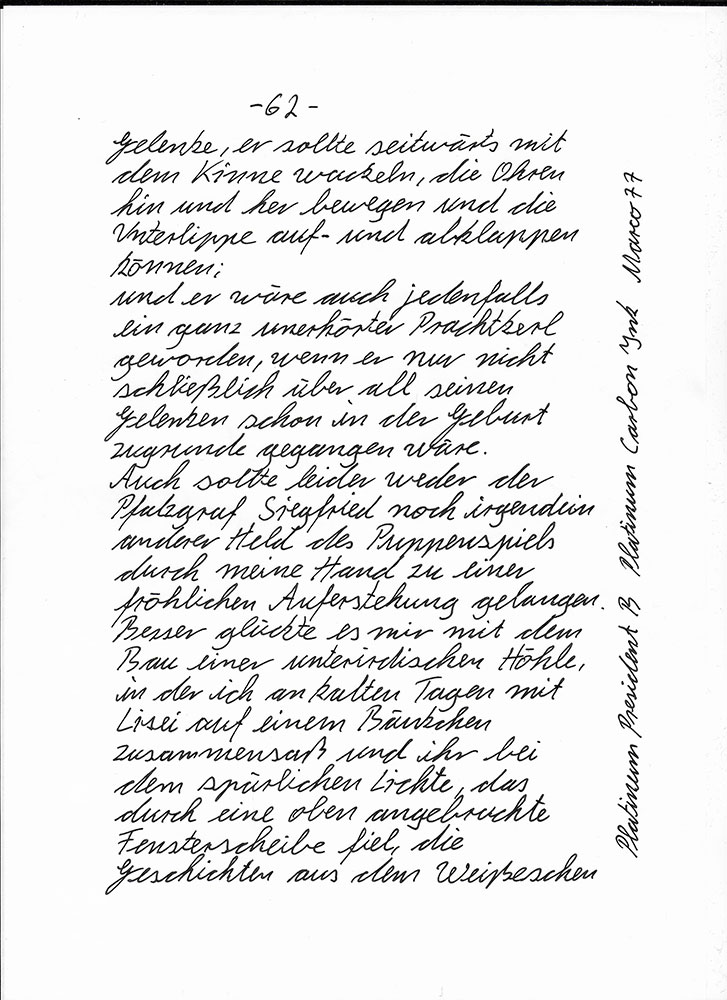 -62-
Gelenke, er sollte seitwärts mit
dem Kinne wackeln, die Ohren
hin und her bewegen und die
Unterlippe auf- und abklappen
können;
und er wäre auch jedenfalls
ein ganz unerhörter Prachtkerl
geworden, wenn er nur nicht
schließlich über all seinen
Gelenken schon in der Geburt
zugrunde gegangen wäre.
Auch sollte leider weder der
Pfalzgraf Siegfried noch irgendein
anderer Held des Puppenspiels
durch meine Hand zu einer
fröhlichen Auferstehung gelangen.
Besser glückte es mir mit dem
Bau einer unterirdischen Höhle,
in der ich an kalten Tagen mit
Lisei auf einem Bänkchen
zusammensaß und ihr bei
dem spärlichen Lichte, das
durch eine oben angebrachte
Fensterscheibe fiel, die
Geschichten aus dem Weißeschen
Platinum President B Platinum Carbon Ynk Marco 77